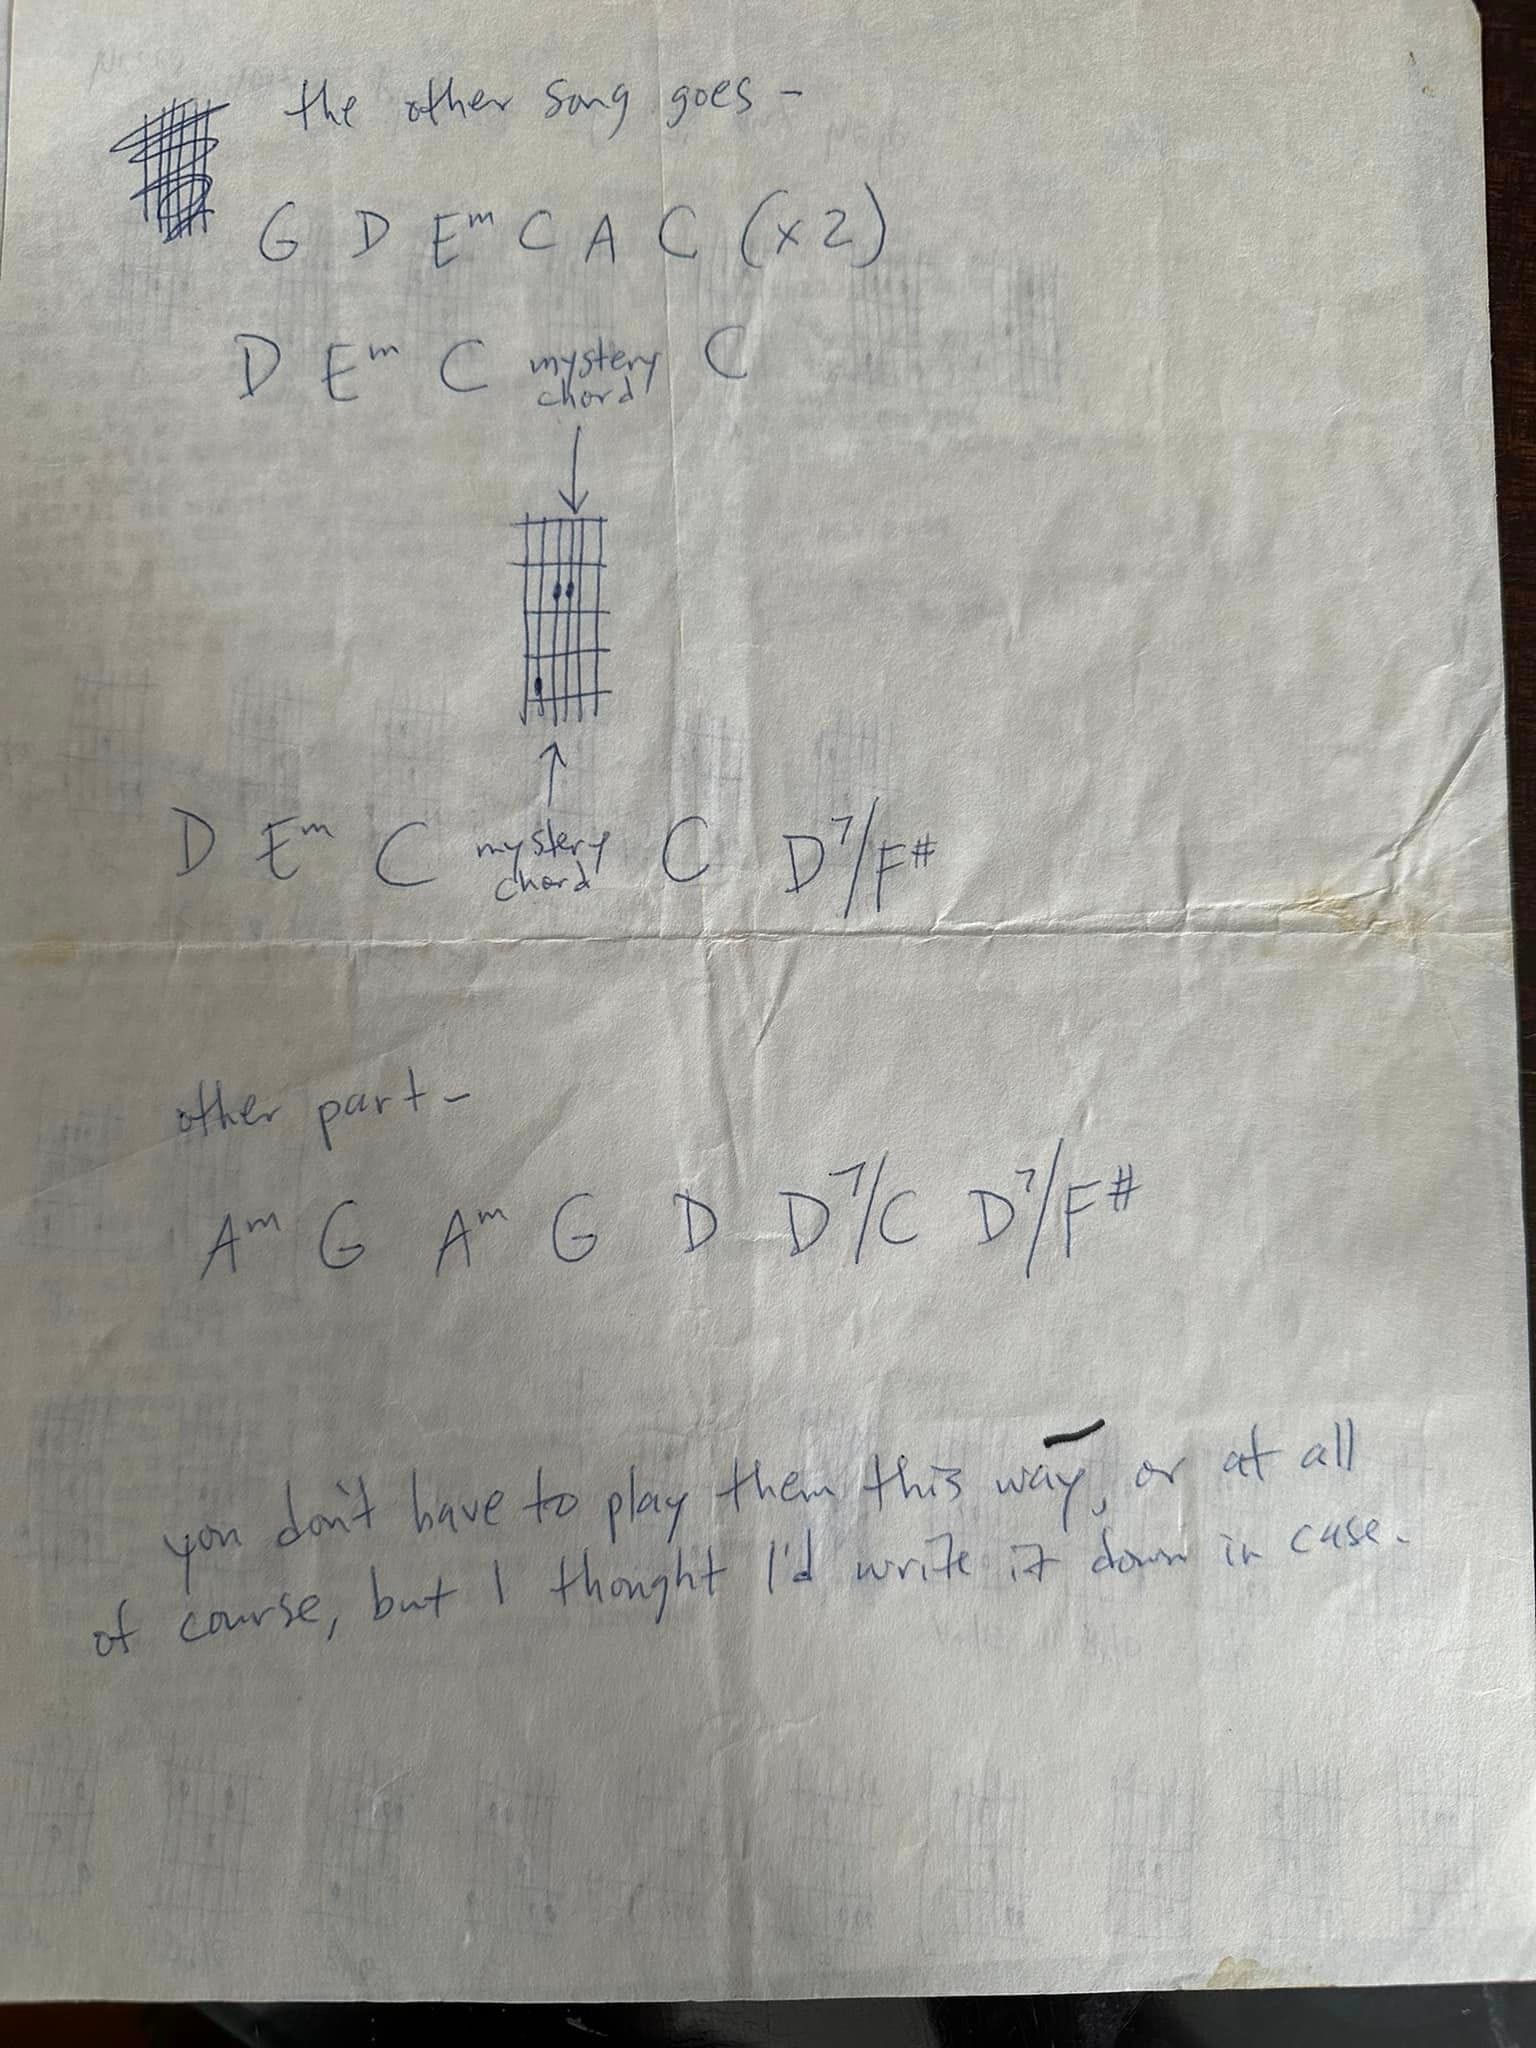 the other song goes -
G D Em C A C (x2)
D Em C mystery chord C
D Em C mystery chord C D7/F#
other part -
Am G Am G D D7/C D7/F#
you don't have to play them this way, or at all
of course, but I thought I'd write it down in case.